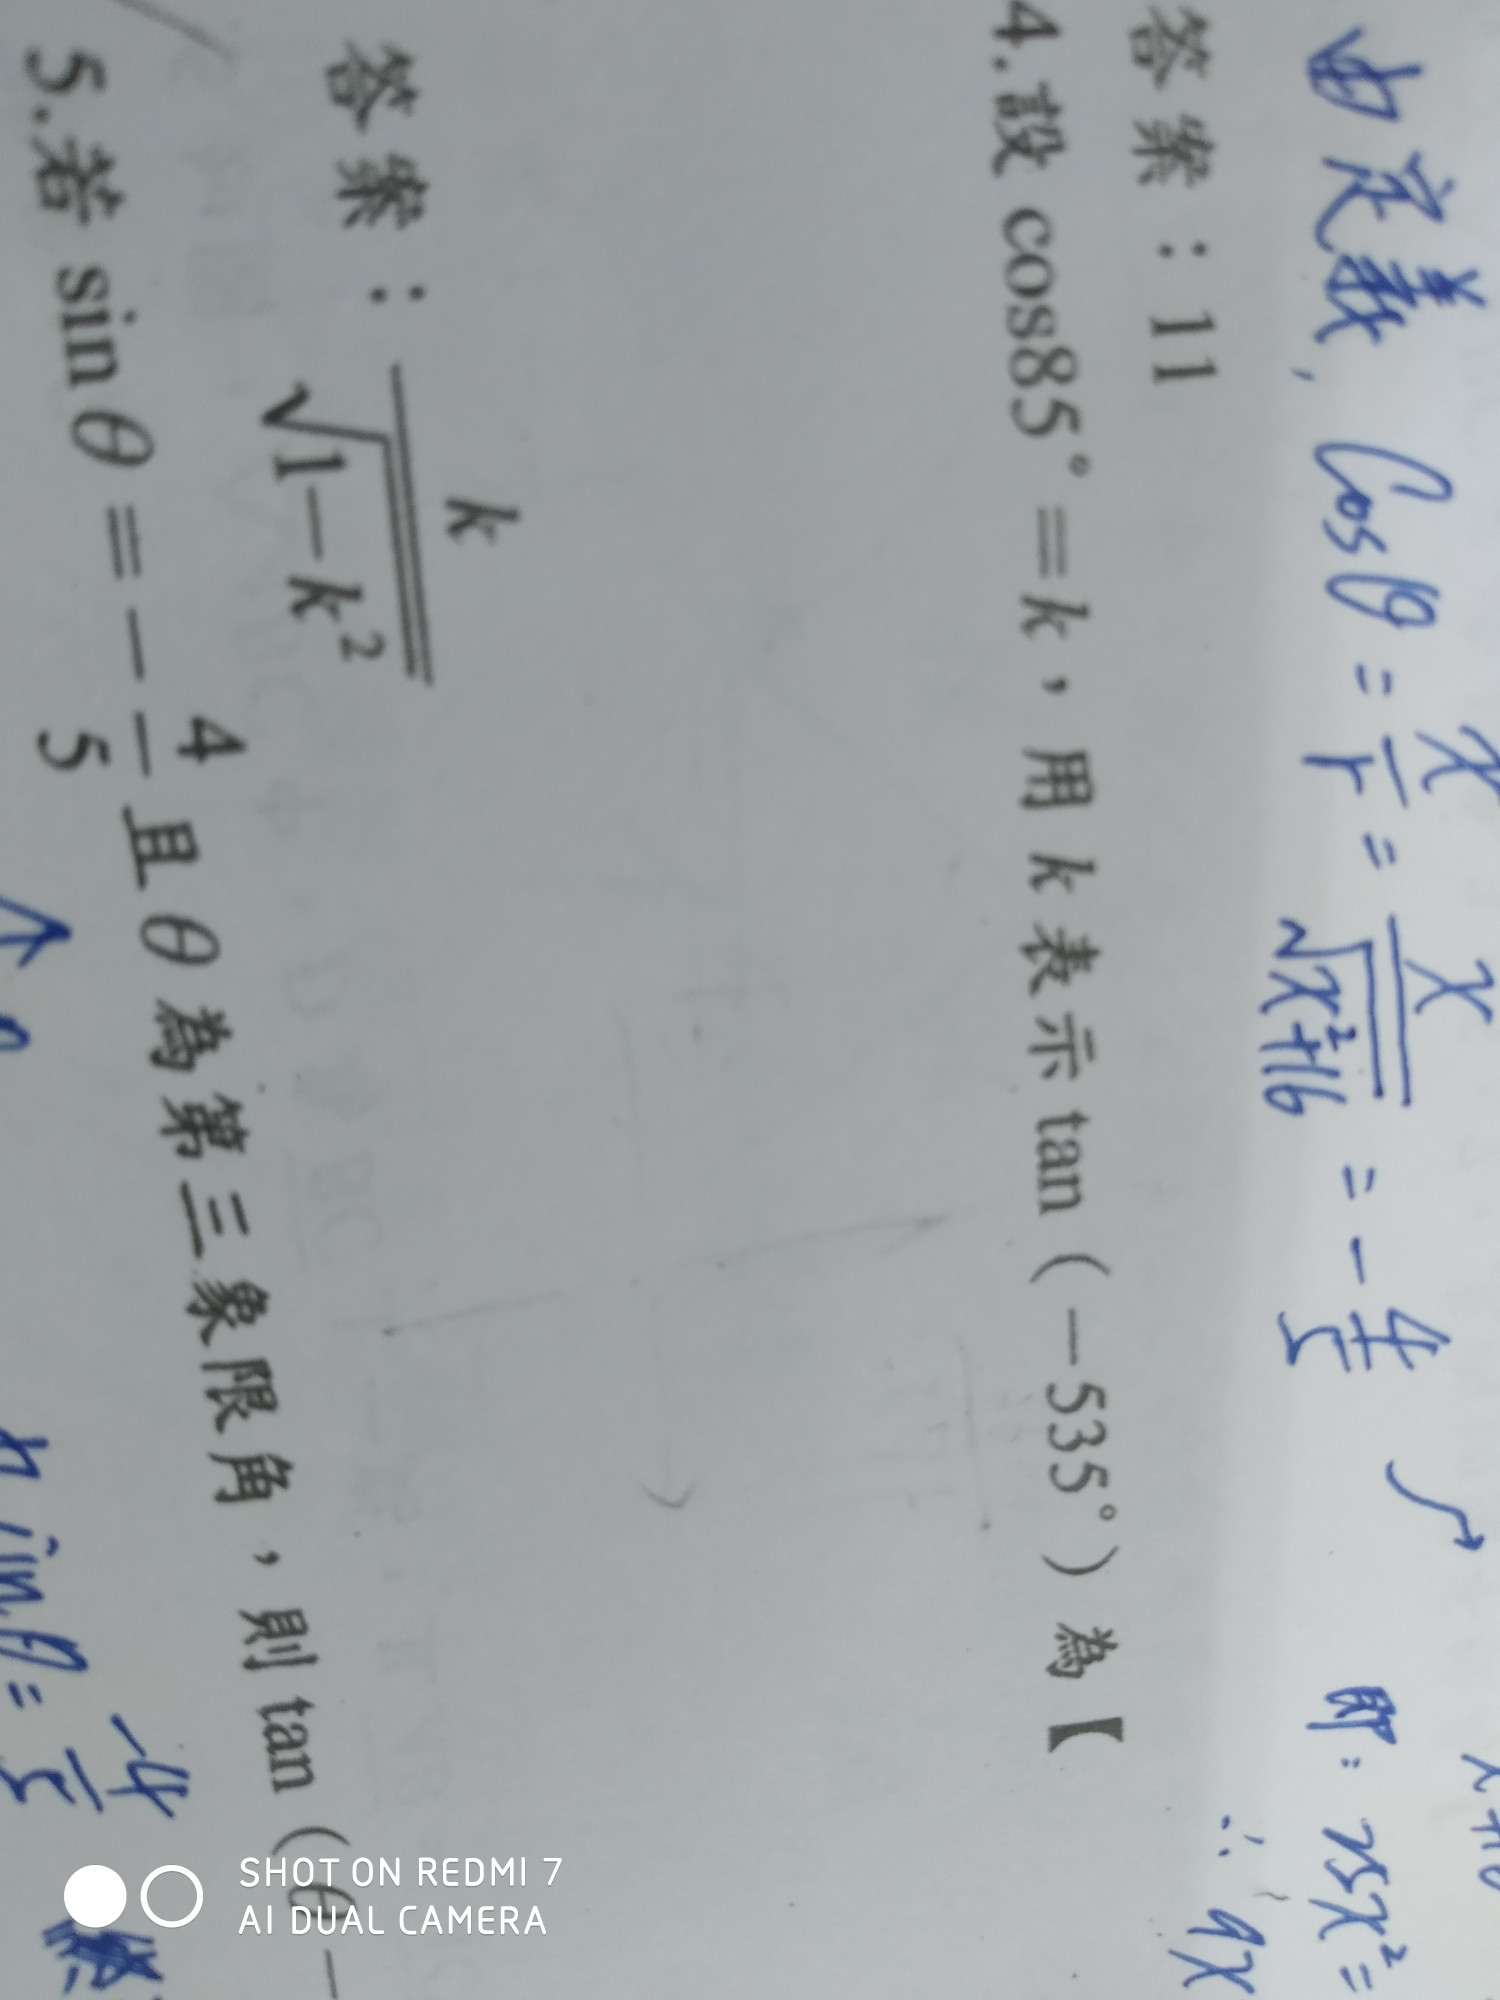 由定義, Cosθ = x/r = x/√(x²+16) = -4/5
即: 25x² =
∴ 9x
答案：11
4.設 cos85°＝k，用 k 表示 tan（－535°）為【
答案： k/√(1－k²)
5.若 sin θ ＝－4/5 且 θ 為第三象限角，則 tan（θ－
sinθ = -4/5
SHOT ON REDMI 7
AI DUAL CAMERA